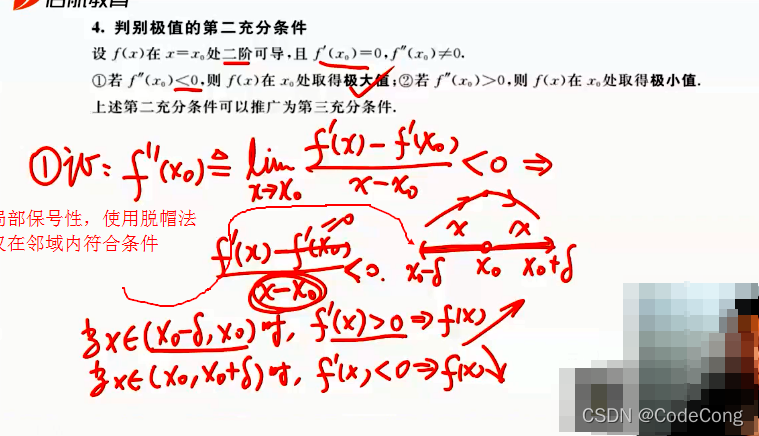 启航教育
4. 判别极值的第二充分条件
设 f(x)在 x=x₀处二阶可导,且 f′(x₀)=0,f″(x₀)≠0.
①若 f″(x₀)<0,则 f(x)在 x₀处取得极大值;②若 f″(x₀)>0,则 f(x)在 x₀处取得极小值.
上述第二充分条件可以推广为第三充分条件.
①证: f″(x₀) ≜ lim x→x₀ (f′(x)-f′(x₀))/(x-x₀) <0 ⇒
局部保号性，使用脱帽法
仅在邻域内符合条件
(f′(x)-f′(x₀))/(x-x₀) <0. =0
x x
x₀-δ x₀ x₀+δ
当x∈(x₀-δ,x₀)时, f′(x)>0⇒f(x)↗
当x∈(x₀,x₀+δ)时, f′(x)<0⇒f(x)↘
CSDN @CodeCong